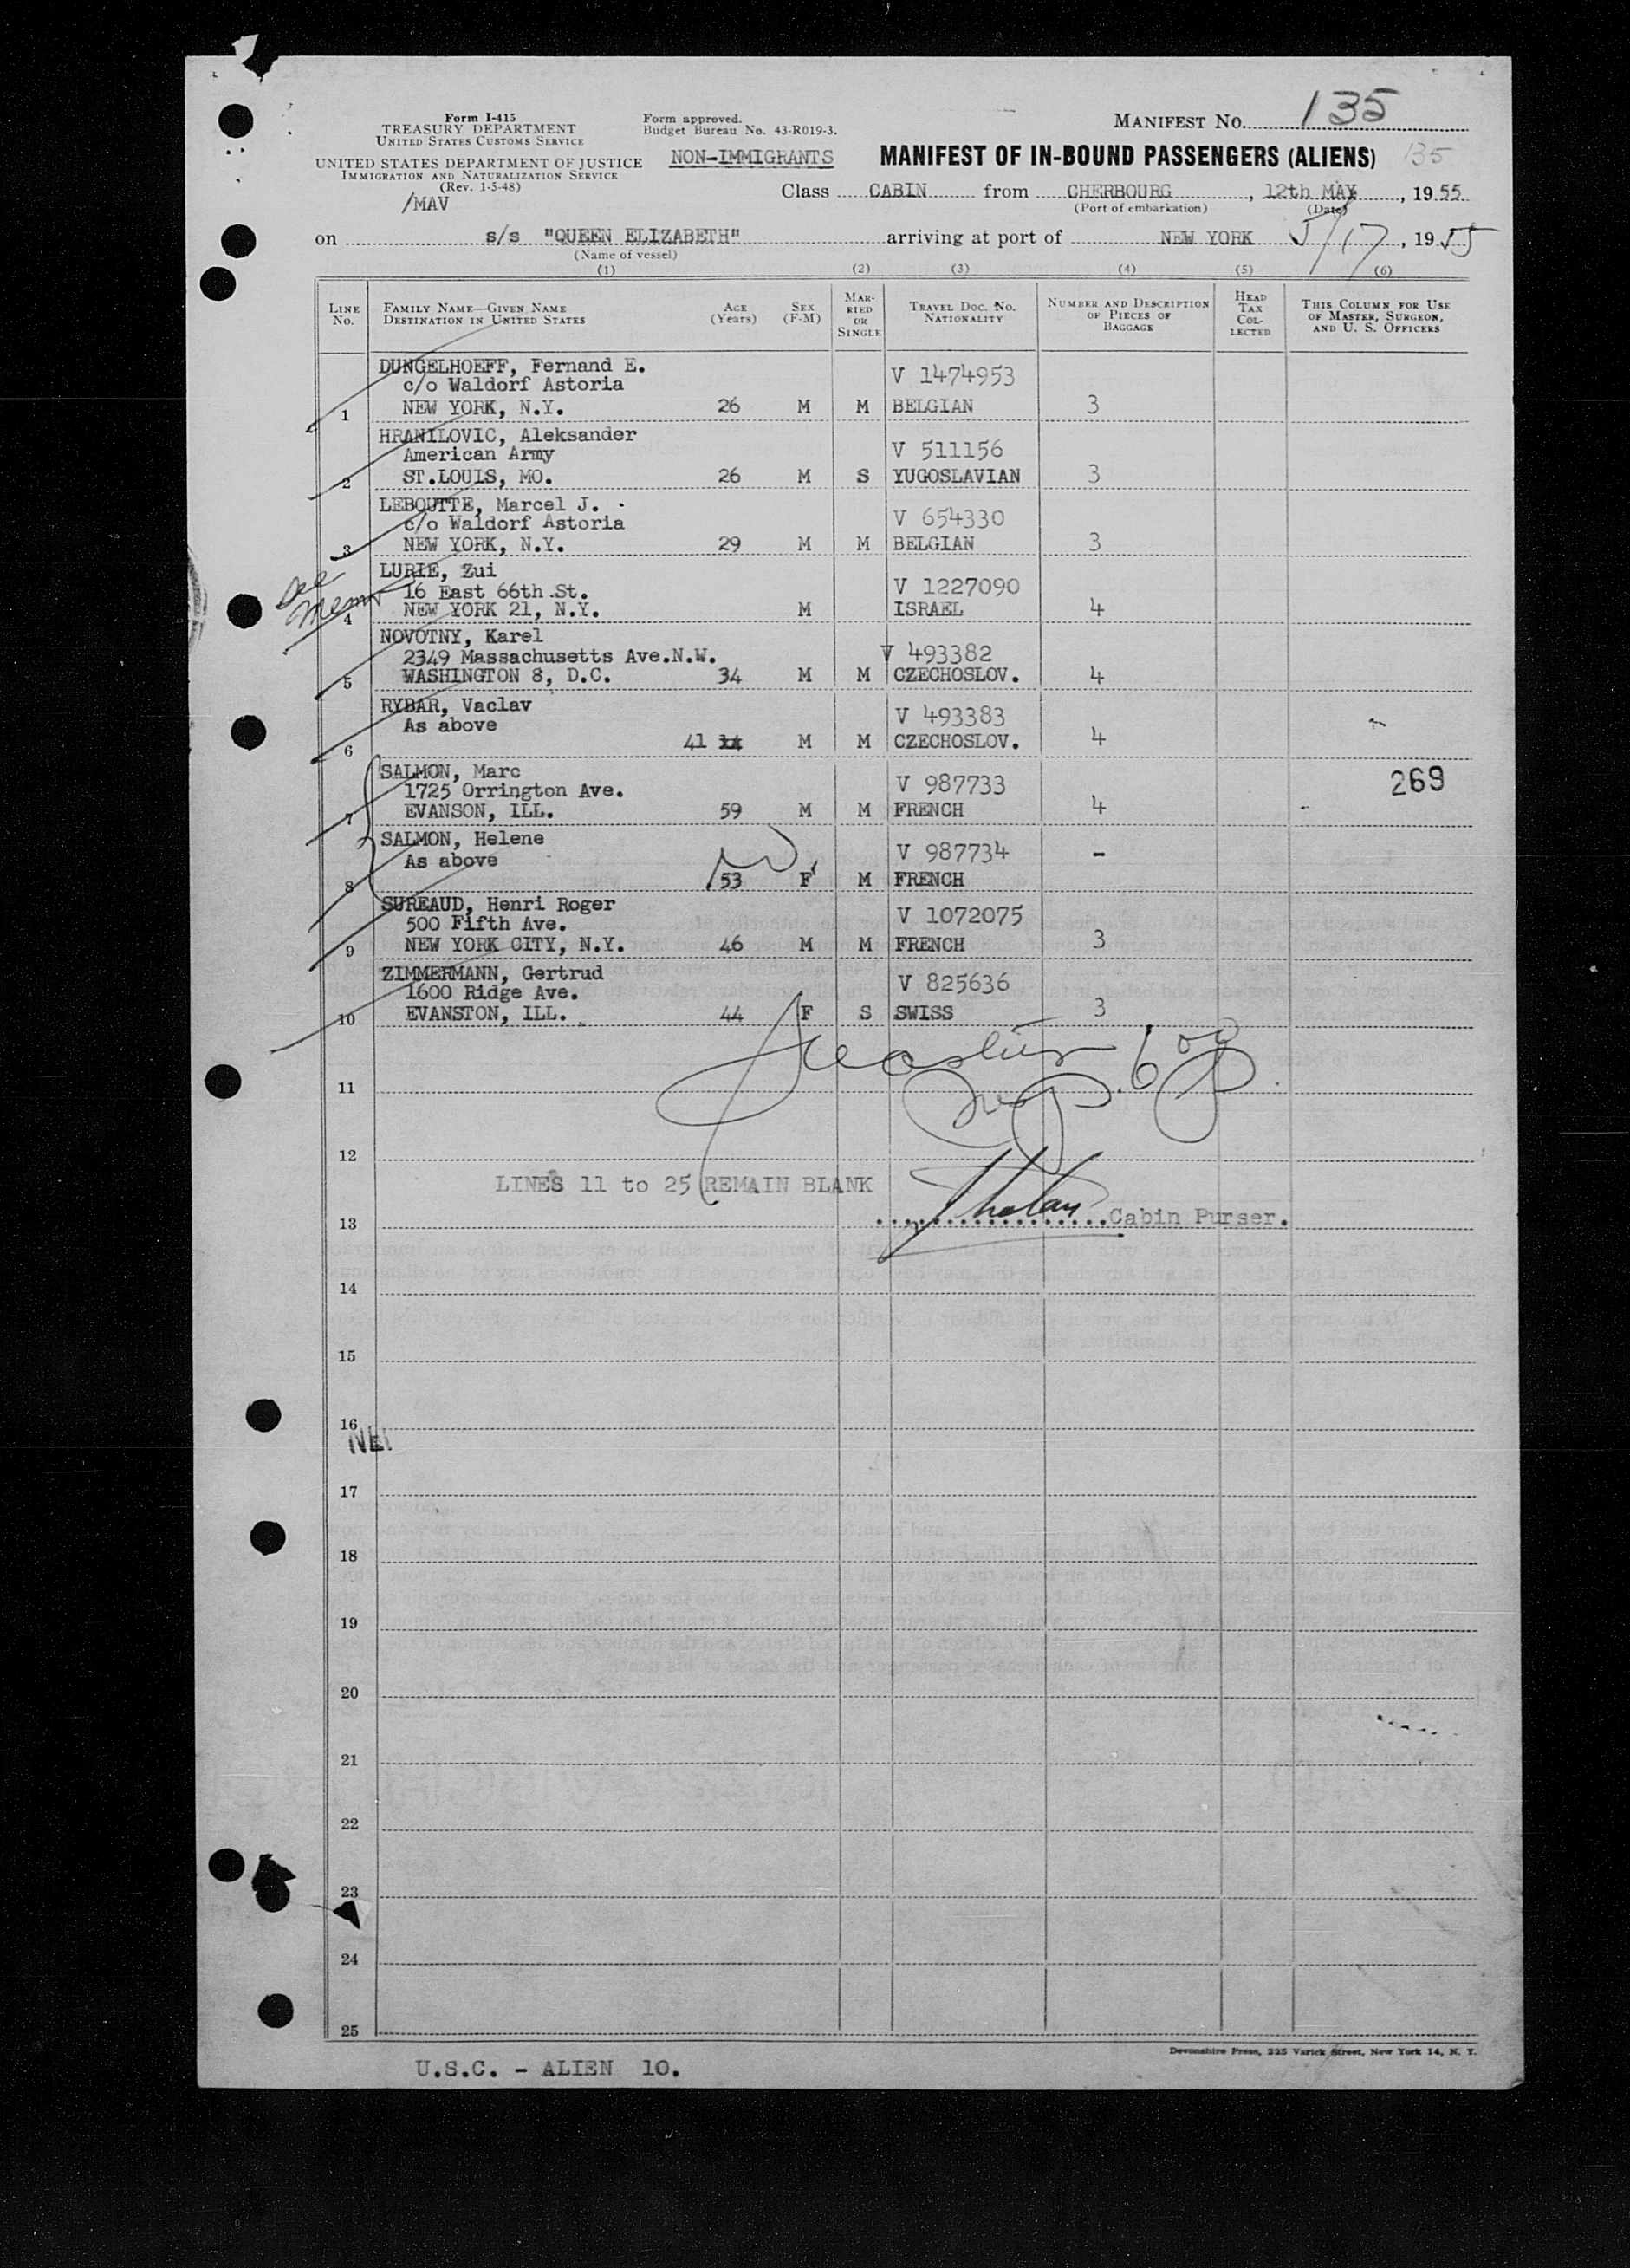 Form I-415
TREASURY DEPARTMENT
UNITED STATES CUSTOMS SERVICE
UNITED STATES DEPARTMENT OF JUSTICE
IMMIGRATION AND NATURALIZATION SERVICE
(Rev. 1-5-48)
/MAV
Form approved.
Budget Bureau No. 43-R019-3.
NON-IMMIGRANTS
MANIFEST NO. 135
MANIFEST OF IN-BOUND PASSENGERS (ALIENS) 135
Class CABIN from CHERBOURG, 12th MAY, 1955
(Port of embarkation) (Date)
on s/s "QUEEN ELIZABETH" arriving at port of NEW YORK 5/17, 1955
(Name of vessel)
(1) (2) (3) (4) (5) (6)
LINE No. FAMILY NAME—GIVEN NAME DESTINATION IN UNITED STATES AGE (Years) SEX (F-M) MARRIED OR SINGLE TRAVEL DOC. NO. NATIONALITY NUMBER AND DESCRIPTION OF PIECES OF BAGGAGE HEAD TAX COLLECTED THIS COLUMN FOR USE OF MASTER, SURGEON, AND U. S. OFFICERS
DUNGELHOEFF, Fernand E.
c/o Waldorf Astoria V 1474953
1 NEW YORK, N.Y. 26 M M BELGIAN 3
HRANILOVIC, Aleksander
American Army V 511156
2 ST.LOUIS, MO. 26 M S YUGOSLAVIAN 3
LEBOUTTE, Marcel J.
c/o Waldorf Astoria V 654330
3 NEW YORK, N.Y. 29 M M BELGIAN 3
See Memo
LURIE, Zui
16 East 66th St. V 1227090
4 NEW YORK 21, N.Y. M ISRAEL 4
NOVOTNY, Karel
2349 Massachusetts Ave.N.W. V 493382
5 WASHINGTON 8, D.C. 34 M M CZECHOSLOV. 4
RYBAR, Vaclav
As above V 493383
6 41 14 M M CZECHOSLOV. 4
SALMON, Marc
1725 Orrington Ave. V 987733 269
7 EVANSON, ILL. 59 M M FRENCH 4
SALMON, Helene
As above V 987734 -
8 53 F M FRENCH
SUREAUD, Henri Roger
500 Fifth Ave. V 1072075
9 NEW YORK CITY, N.Y. 46 M M FRENCH 3
ZIMMERMANN, Gertrud
1600 Ridge Ave. V 825636
10 EVANSTON, ILL. 44 F S SWISS 3
11
12
LINES 11 to 25 REMAIN BLANK
13 Cabin Purser.
14
15
16
NEI
17
18
19
20
21
22
23
24
25
Devonshire Press, 225 Varick Street, New York 14, N. Y.
U.S.C. - ALIEN 10.